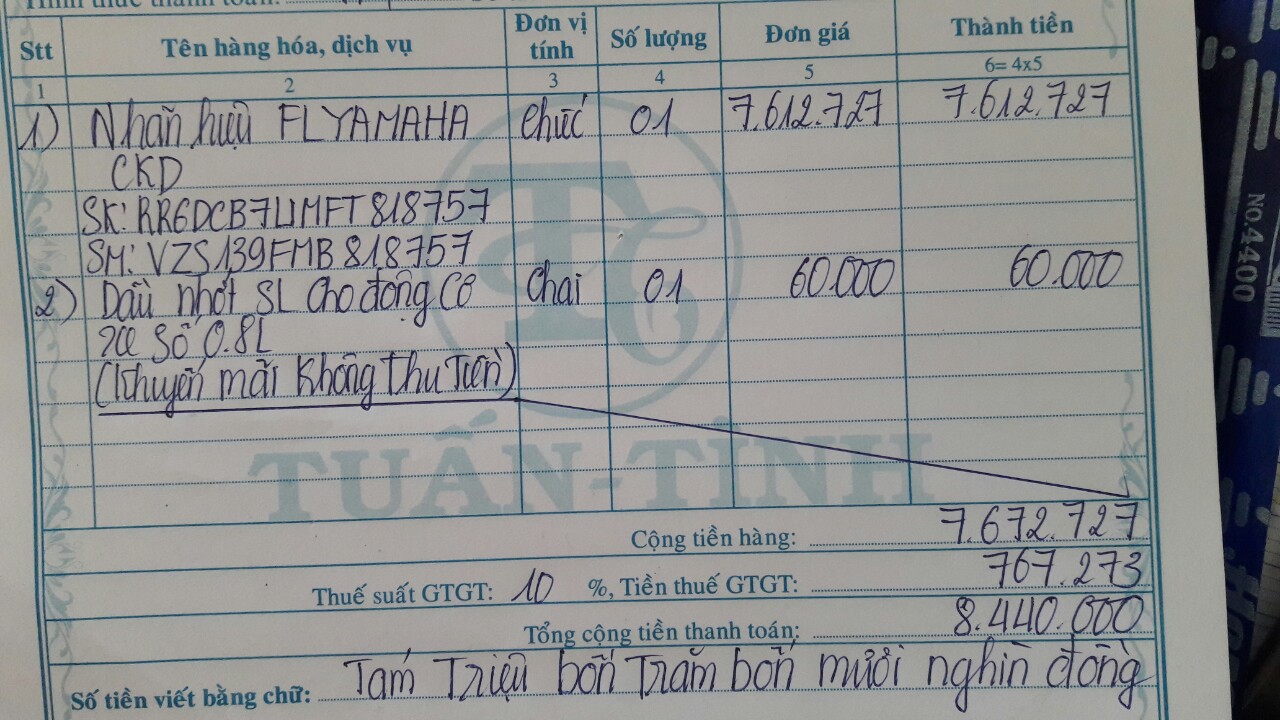 Hình thức thanh toán:
Stt Tên hàng hóa, dịch vụ Đơn vị tính Số lượng Đơn giá Thành tiền
1 2 3 4 5 6= 4x5
1) Nhãn hiệu FLYAMAHA Chiếc 01 7.612.727 7.612.727
CKD
SK: RR6DCB7UMFT818757
SM: VZS139FMB818757
2) Dầu nhớt SL cho động cơ Chai 01 60.000 60.000
xe Số 0.8L
(Khuyến mãi Không thu Tiền)
TUẤN-TÌNH
Cộng tiền hàng: 7.672.727
Thuế suất GTGT: 10 %, Tiền thuế GTGT: 767.273
Tổng cộng tiền thanh toán: 8.440.000
Số tiền viết bằng chữ: Tám Triệu bốn Trăm bốn mươi nghìn đồng
NO.4400